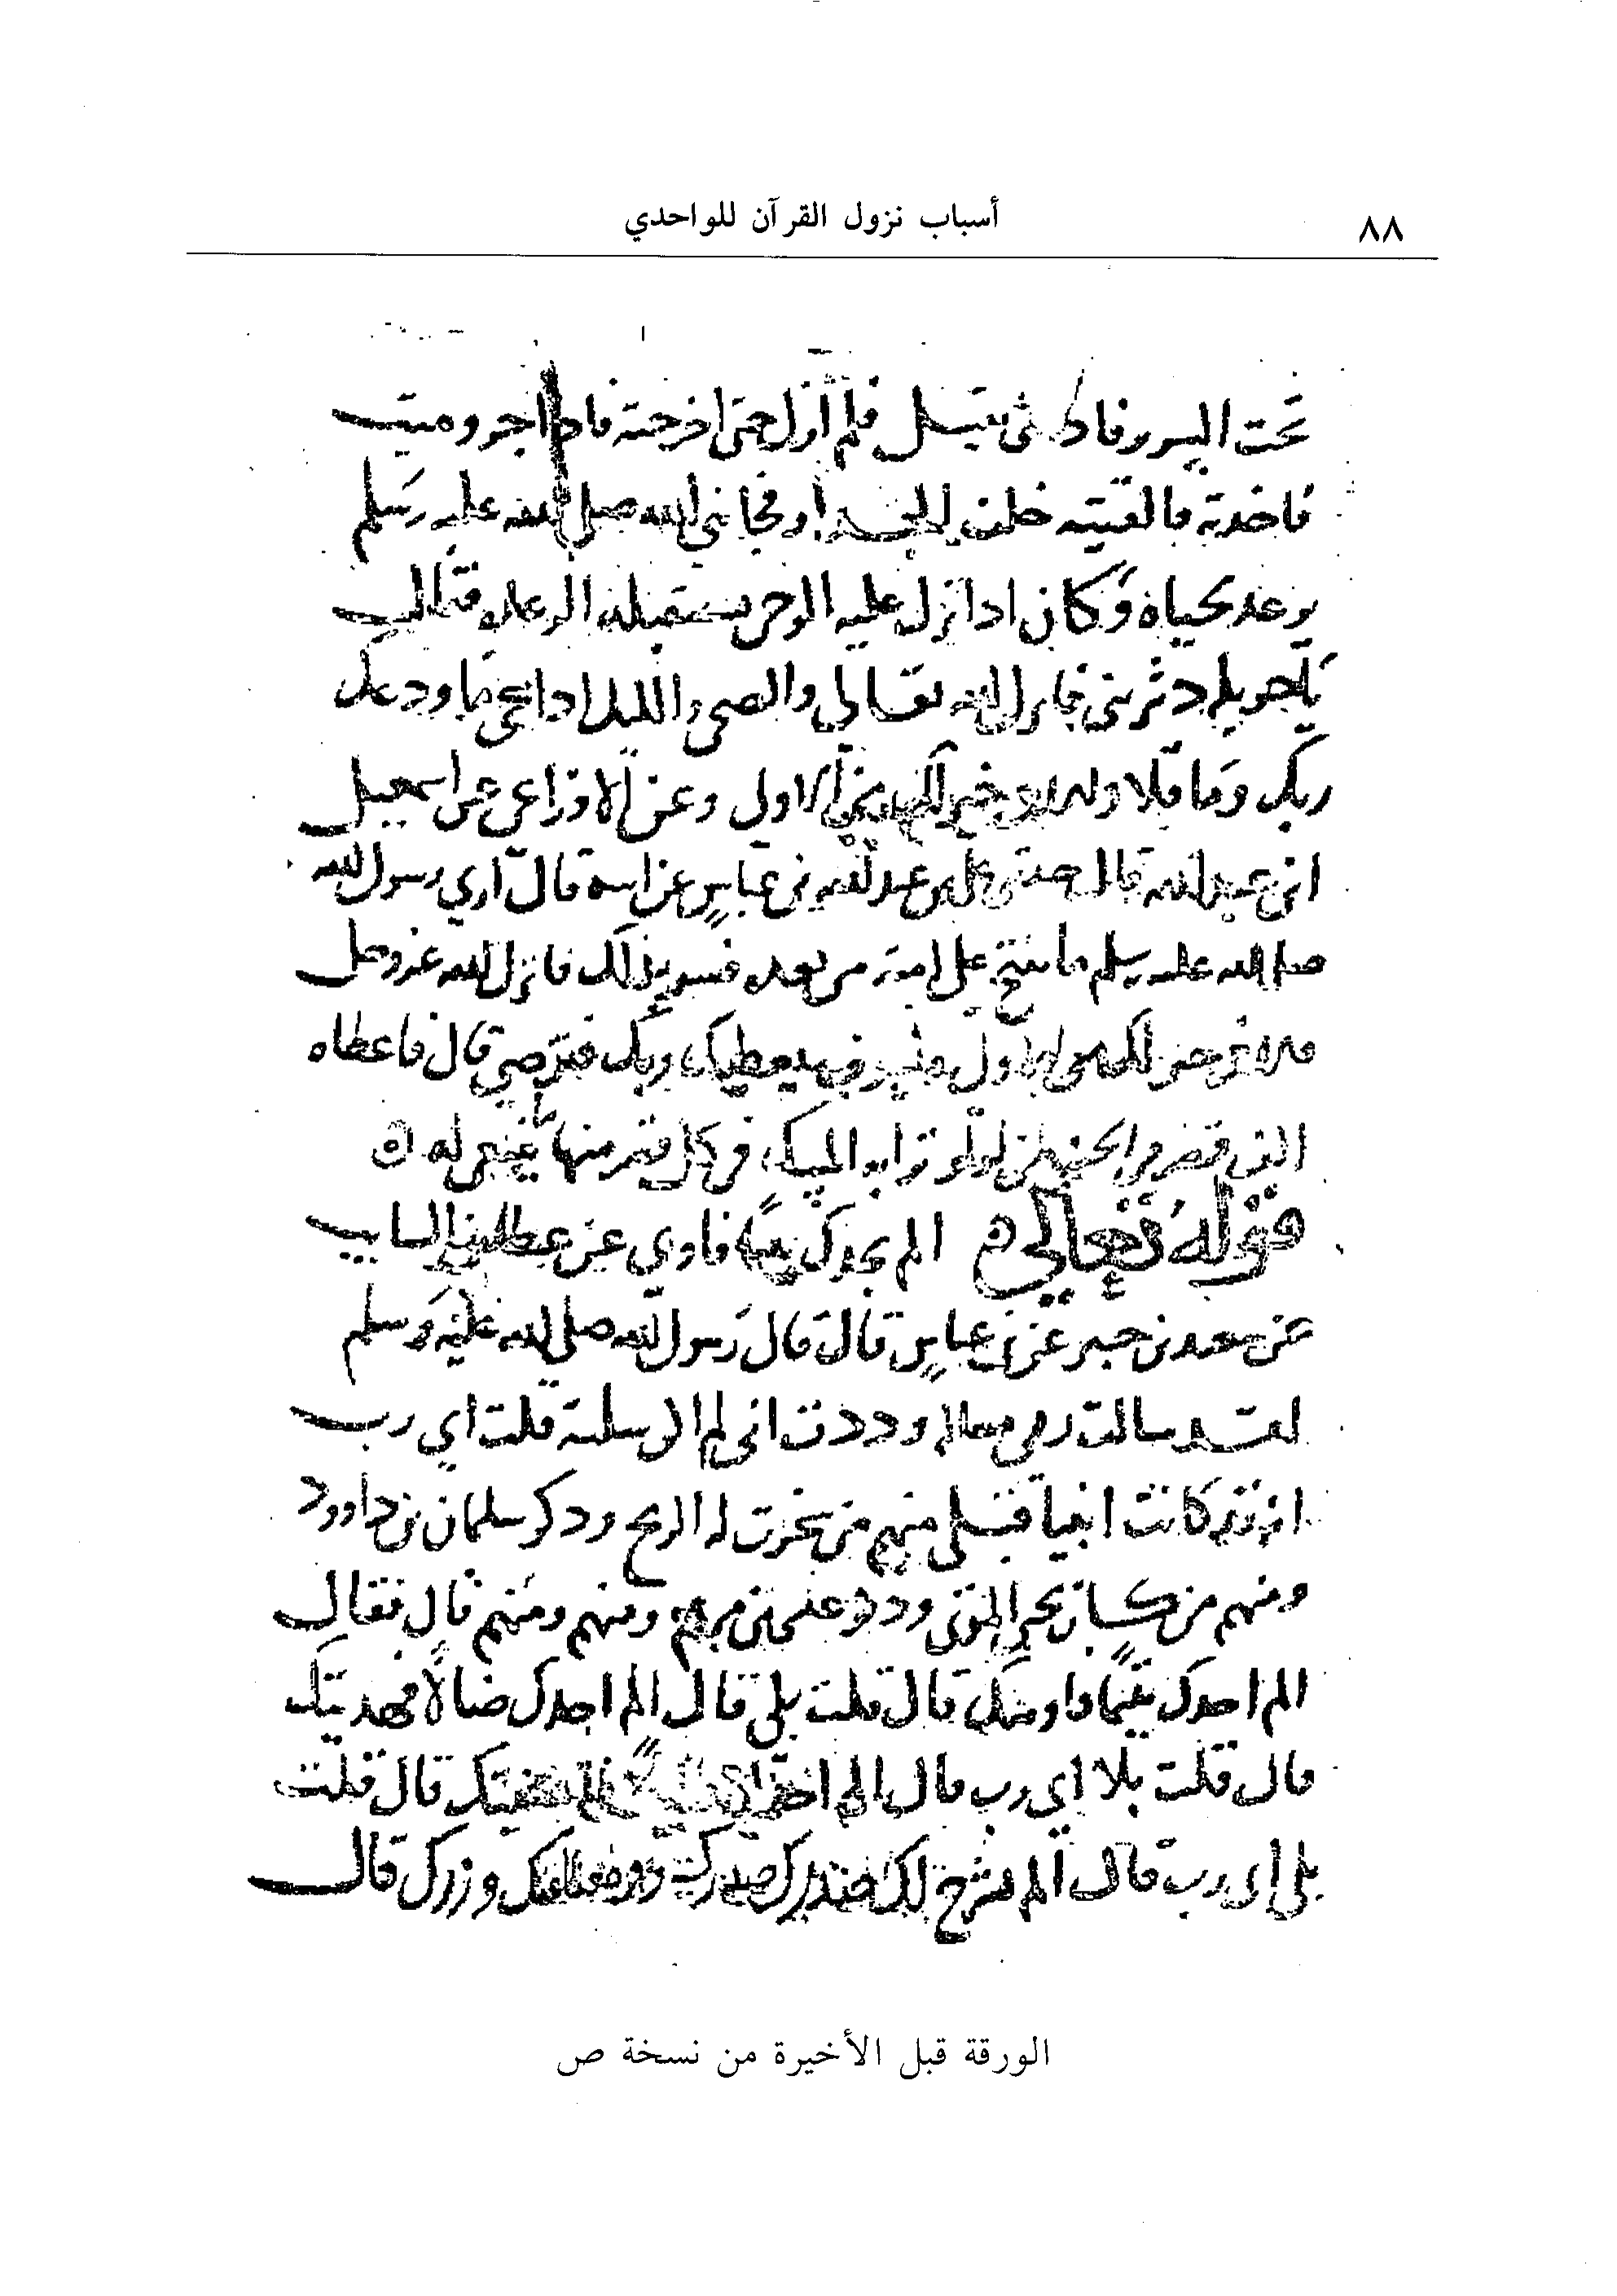 ٨٨
أسباب نزول القرآن للواحدي
تحت السرير فاذا شى ثقيل فلم ازل حتى اخرجته فاذا جرو ميت
فاخذته فالقيته خلف الجدار فجا نبي الله صلى الله عليه وسلم
يرعد لحياه وكان اذا نزل عليه الوحى يستقبله الرعدة فقال
يا خويلة دثرينى فانزل الله تعالى والضحى والليل اذا سجى ما ودعك
ربك وما قلا وللاخرة خير لك من الاولى وعن الاوزاعي عن اسمعيل
ابن عبيد الله قال حدثنى على بن عبد الله بن عباس عن ابيه قال اري رسول الله
صلى الله عليه وسلم ما يفتح على امته من بعده فسر بذلك فانزل الله عز وجل
وللاخرة خير لك من الاولى ولسوف يعطيك ربك فترضى قال فاعطاه
الف قصر في الجنة من لولو ترابه المسك في كل قصر منها ما ينبغي له
قوله تعالى الم يجدك يتيما فاوى عن عطا بن السايب
عن سعيد بن جبير عن ابن عباس قال قال رسول الله صلى الله عليه وسلم
لقد سالت ربي مسالة وددت اني لم اكن سالته قلت اي رب
انه قد كانت انبيا قبلى منهم من سخرت له الريح وذكر سليمان بن داوود
ومنهم من كان يحي الموتى وذكر عيسى بن مريم ومنهم ومنهم قال فقال
الم اجدك يتيما فاويتك قال قلت بلى قال الم اجدك ضالا فهديتك
قال قلت بلا اي رب قال الم اجدك عايلا فاغنيتك قال قلت
بلى اي رب قال الم نشرح لك صدرك ووضعنا عنك وزرك قال
الورقة قبل الأخيرة من نسخة ص